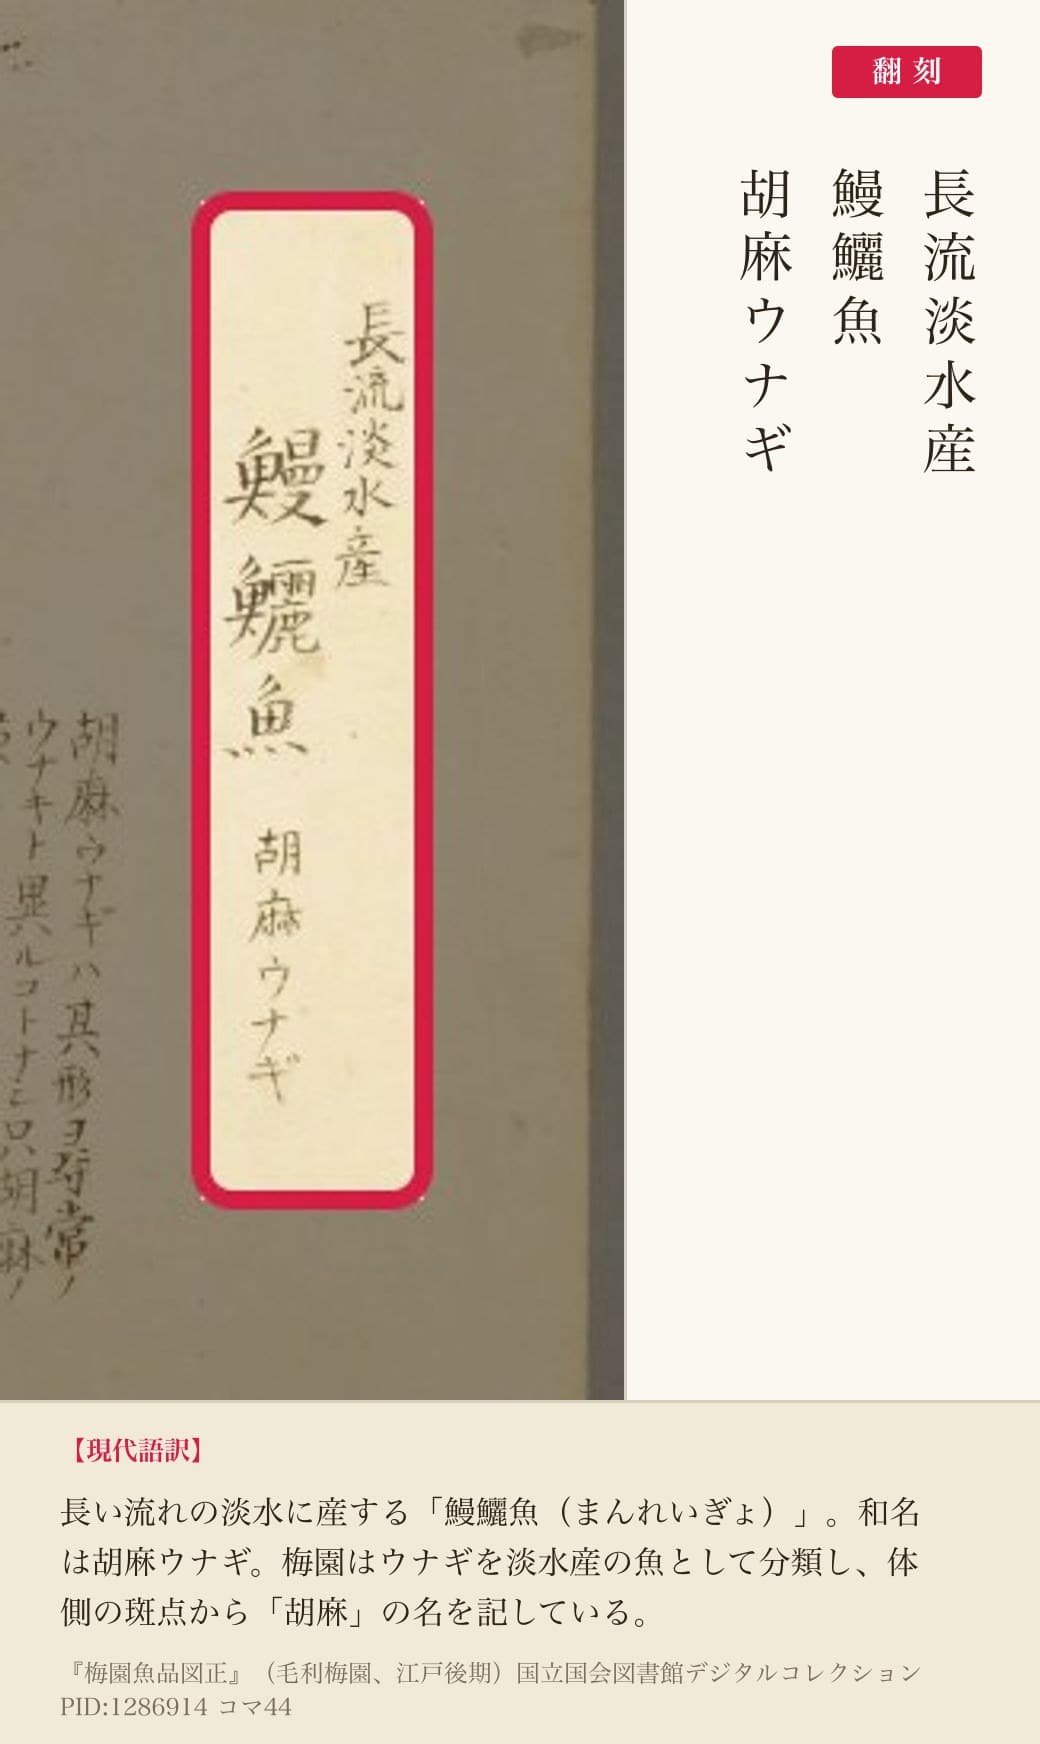 翻刻
長流淡水産
鰻鱺魚
胡麻ウナギ
長流淡水産
鰻鱺魚 胡麻ウナギ
胡麻ウナギハ其形ヨ尋常ノ
ウナキト異ハルコトナシ只胡麻ノ
【現代語訳】
長い流れの淡水に産する「鰻鱺魚（まんれいぎょ）」。和名
は胡麻ウナギ。梅園はウナギを淡水産の魚として分類し、体
側の斑点から「胡麻」の名を記している。
『梅園魚品図正』（毛利梅園、江戸後期）国立国会図書館デジタルコレクション
PID:1286914 コマ44